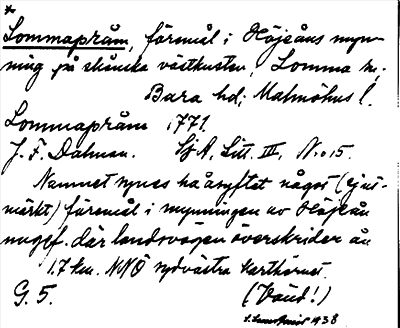 *
Lommapråm, föremål i Höjeåns myn-
ning på skånska västkusten, Lomma sn,
Bara hd, Malmöhus l.
Lommapråm 1771.
J. F. Dalman. SjA, Litt. III, No 15.
Namnet synes ha åsyftat något (sjö-
märkt) föremål i mynningen av Höjeån
ungef. där landsvägen överskrider ån
1.7 km. NNÖ sydvästra karthörnet.
G. 5. (Vänd!)
1938